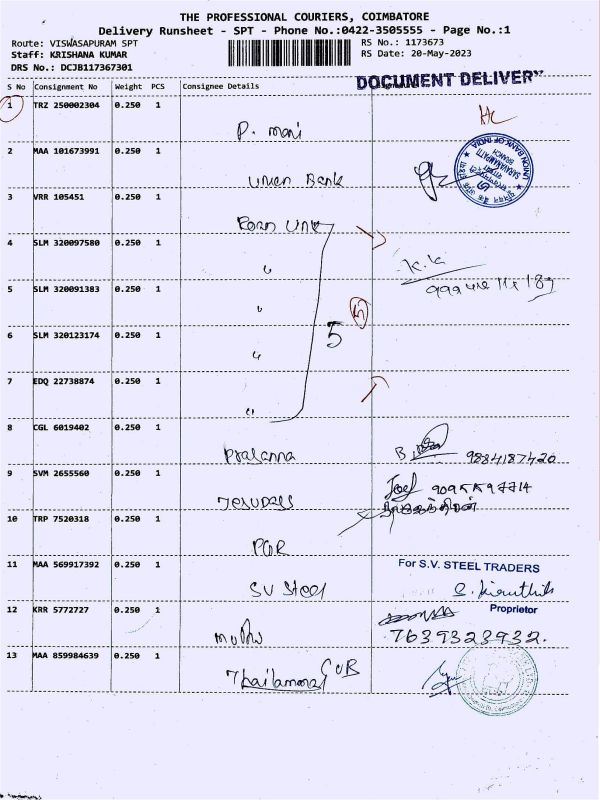 THE PROFESSIONAL COURIERS, COIMBATORE
Delivery Runsheet - SPT - Phone No.:0422-3505555 - Page No.:1
Route: VISWASAPURAM SPT
Staff: KRISHANA KUMAR
DRS No.: DCJB117367301
RS No.: 1173673
RS Date: 20-May-2023
DOCUMENT DELIVERY
S No Consignment No Weight PCS Consignee Details
1 TRZ 250002304 0.250 1
P. mani
2 MAA 101673991 0.250 1
Union Bank
UNION BANK OF INDIA
SARAVANAMPATTI
BRANCH
3 VRR 105451 0.250 1
4 SLM 320097580 0.250 1
"
K.K
5 SLM 320091383 0.250 1
"
5
5
6 SLM 320123174 0.250 1
"
7 EDQ 22738874 0.250 1
"
8 CGL 6019402 0.250 1
Prasanna
9884187420
9 SVM 2655560 0.250 1
Jesudass
Joel
10 TRP 7520318 0.250 1
PGR
11 MAA 569917392 0.250 1
SV Steel
For S.V. STEEL TRADERS
Proprietor
12 KRR 5772727 0.250 1
Muthu
7639323932.
13 MAA 859984639 0.250 1
CUB